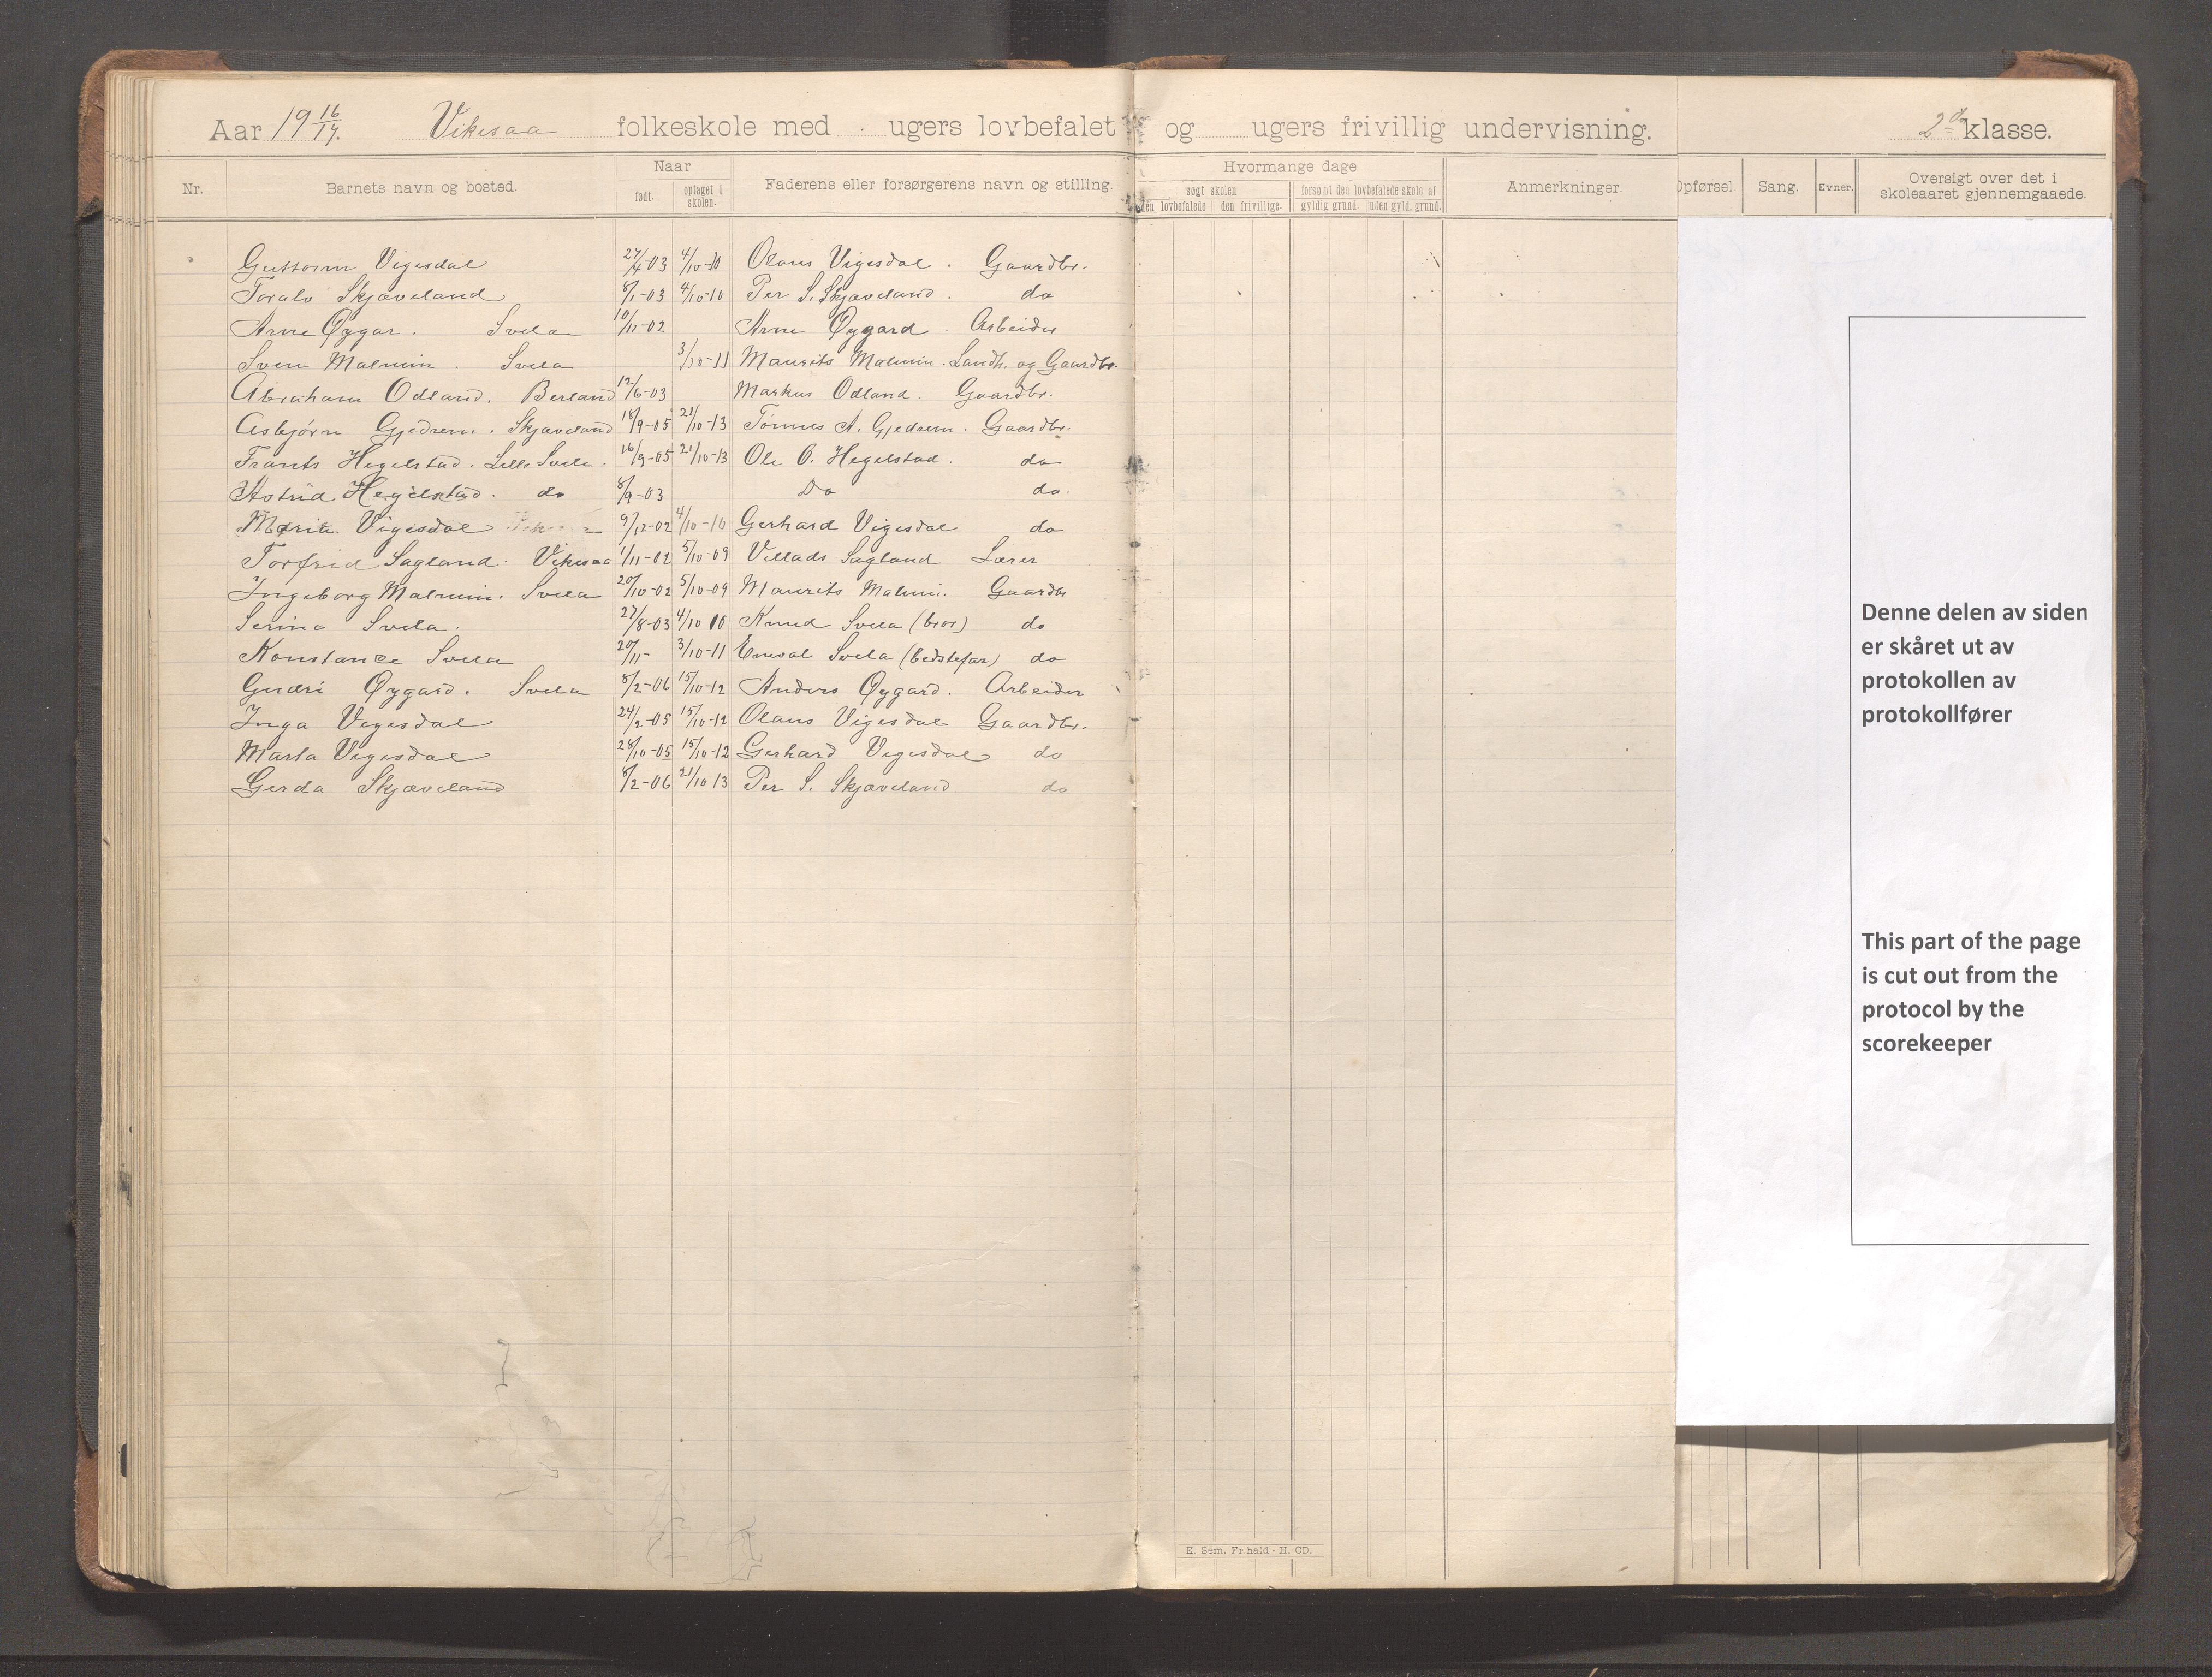 Aar 19 16/17. Vikesaa folkeskole med ugers lovbefalet og ugers frivillig undervisning. 2den klasse.
Nr. Barnets navn og bosted. Naar født. optaget i skolen. Faderens eller forsørgerens navn og stilling. Hvormange dage søgt skolen den lovbefalede den frivillige. forsømt den lovbefalede skole af gyldig grund. uden gyld. grund. Anmerkninger. Opførsel. Sang. Evner. Oversigt over det i skoleaaret gjennemgaaede.
Guttorm Vigesdal 27/4-03 4/10-10 Olaus Vigesdal. Gaardbr.
Toralv Skjæveland 8/1-03 4/10-10 Per S. Skjæveland. do
Arne Øygar. Svela 10/11-02 Arne Øygard. Arbeider
Sven Malmin. Svela 3/10-11 Maurits Malmin. Landh. og Gaardbr.
Abraham Odland. Berland 12/6-03 Markus Odland. Gaardbr.
Asbjørn Gjedrem. Skjæveland 18/9-05 21/10-13 Tønnes A. Gjedrem. Gaardbr.
Frants Hegelstad. Lille Svela. 16/9-05 21/10-13 Ole O. Hegelstad. do
Astrid Hegelstad. do 8/9-03 Do do.
Maria Vigesdal 9/12-02 4/10-10 Gerhard Vigesdal do
Torfrid Sagland. Vikesaa 1/11-02 5/10-09 Villads Sagland Lærer
Ingeborg Malmin. Svela 20/10-02 5/10-09 Maurits Malmin. Gaardbr
Serina Svela. 27/8-03 4/10 10 Knud Svela (bror) do
Konstance Svela 20/11- 3/10-11 Svela (bedstefar) do
Gudri Øygard. Svela 8/2-06 15/10-12 Anders Øygard. Arbeider
Inga Vigesdal 24/2-05 15/10-12 Olaus Vigesdal Gaardbr.
Marta Vigesdal 28/10-05 15/10-12 Gerhard Vigesdal do
Gerda Skjæveland 8/2-06 21/10 13 Per S. Skjæveland do
Denne delen av siden
er skåret ut av
protokollen av
protokollfører
This part of the page
is cut out from the
protocol by the
scorekeeper
E. Sem. Fr.hald - H. OD.